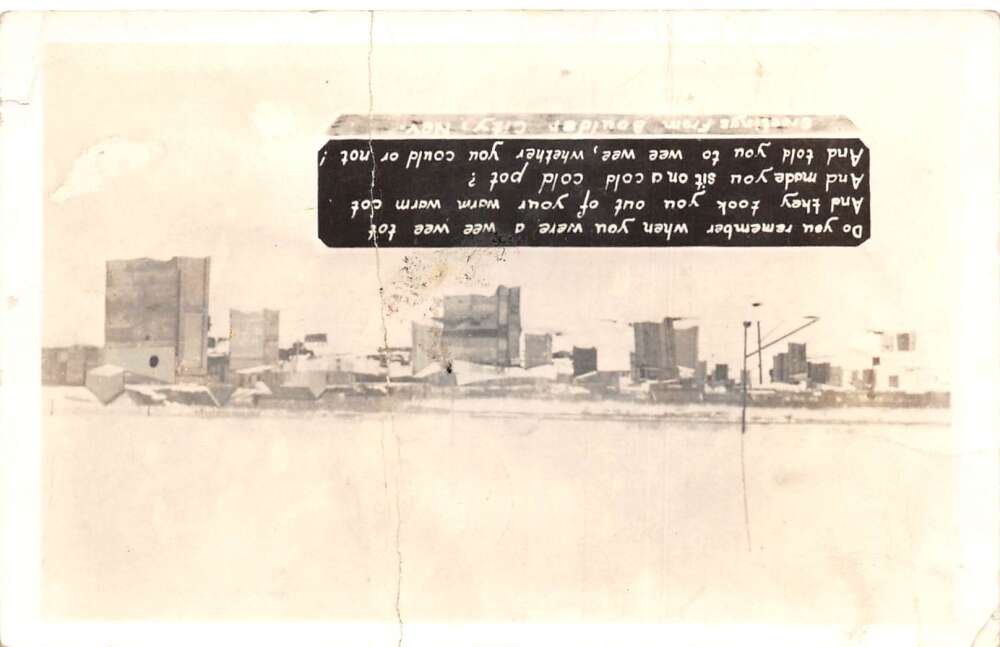 Do you remember when you were a wee wee tot
And they took you out of your warm warm cot
And made you sit on a cold cold pot?
And told you to wee wee, whether you could or not!
Greetings From Boulder City, Nev.